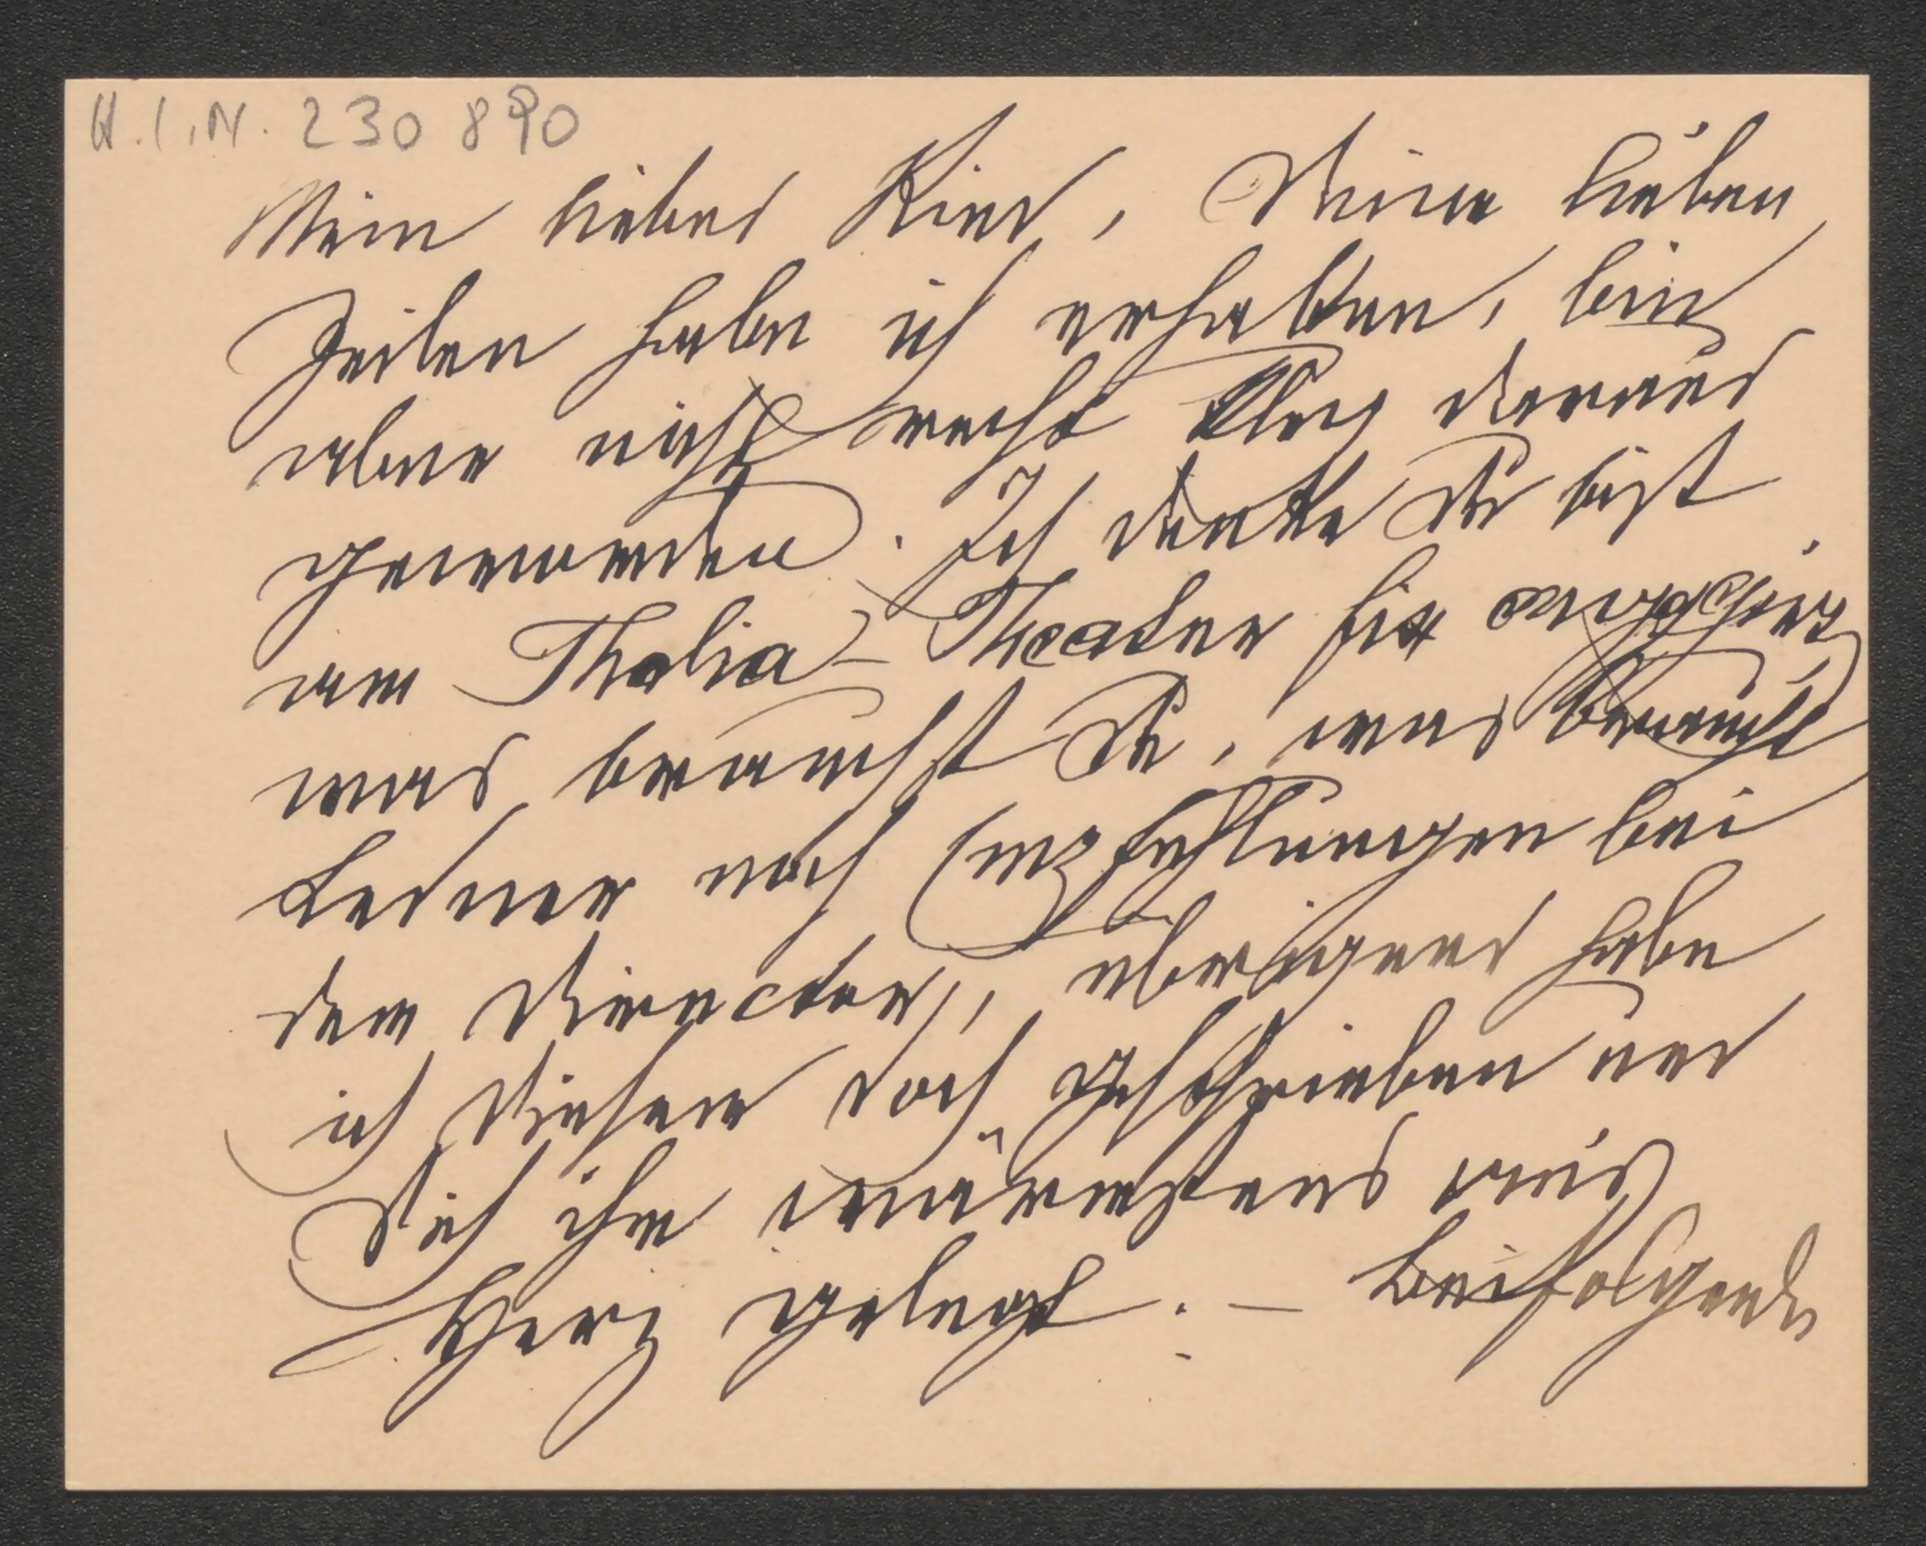 H.I.N. 230 890
Mein liebes Kind, Deine lieben
Zeilen habe ich erhalten, bin
aber nicht recht klug daraus
geworden. Ich denke Du bist
am Thalia-Theater fix engagirt,
was brauchst Du, was braucht
noch Empfehlungen bei
dem Director, übrigens habe
ich diesem doch geschrieben und
Dich ihm wärmstens an's
Herz gelegt. — Beifolgende